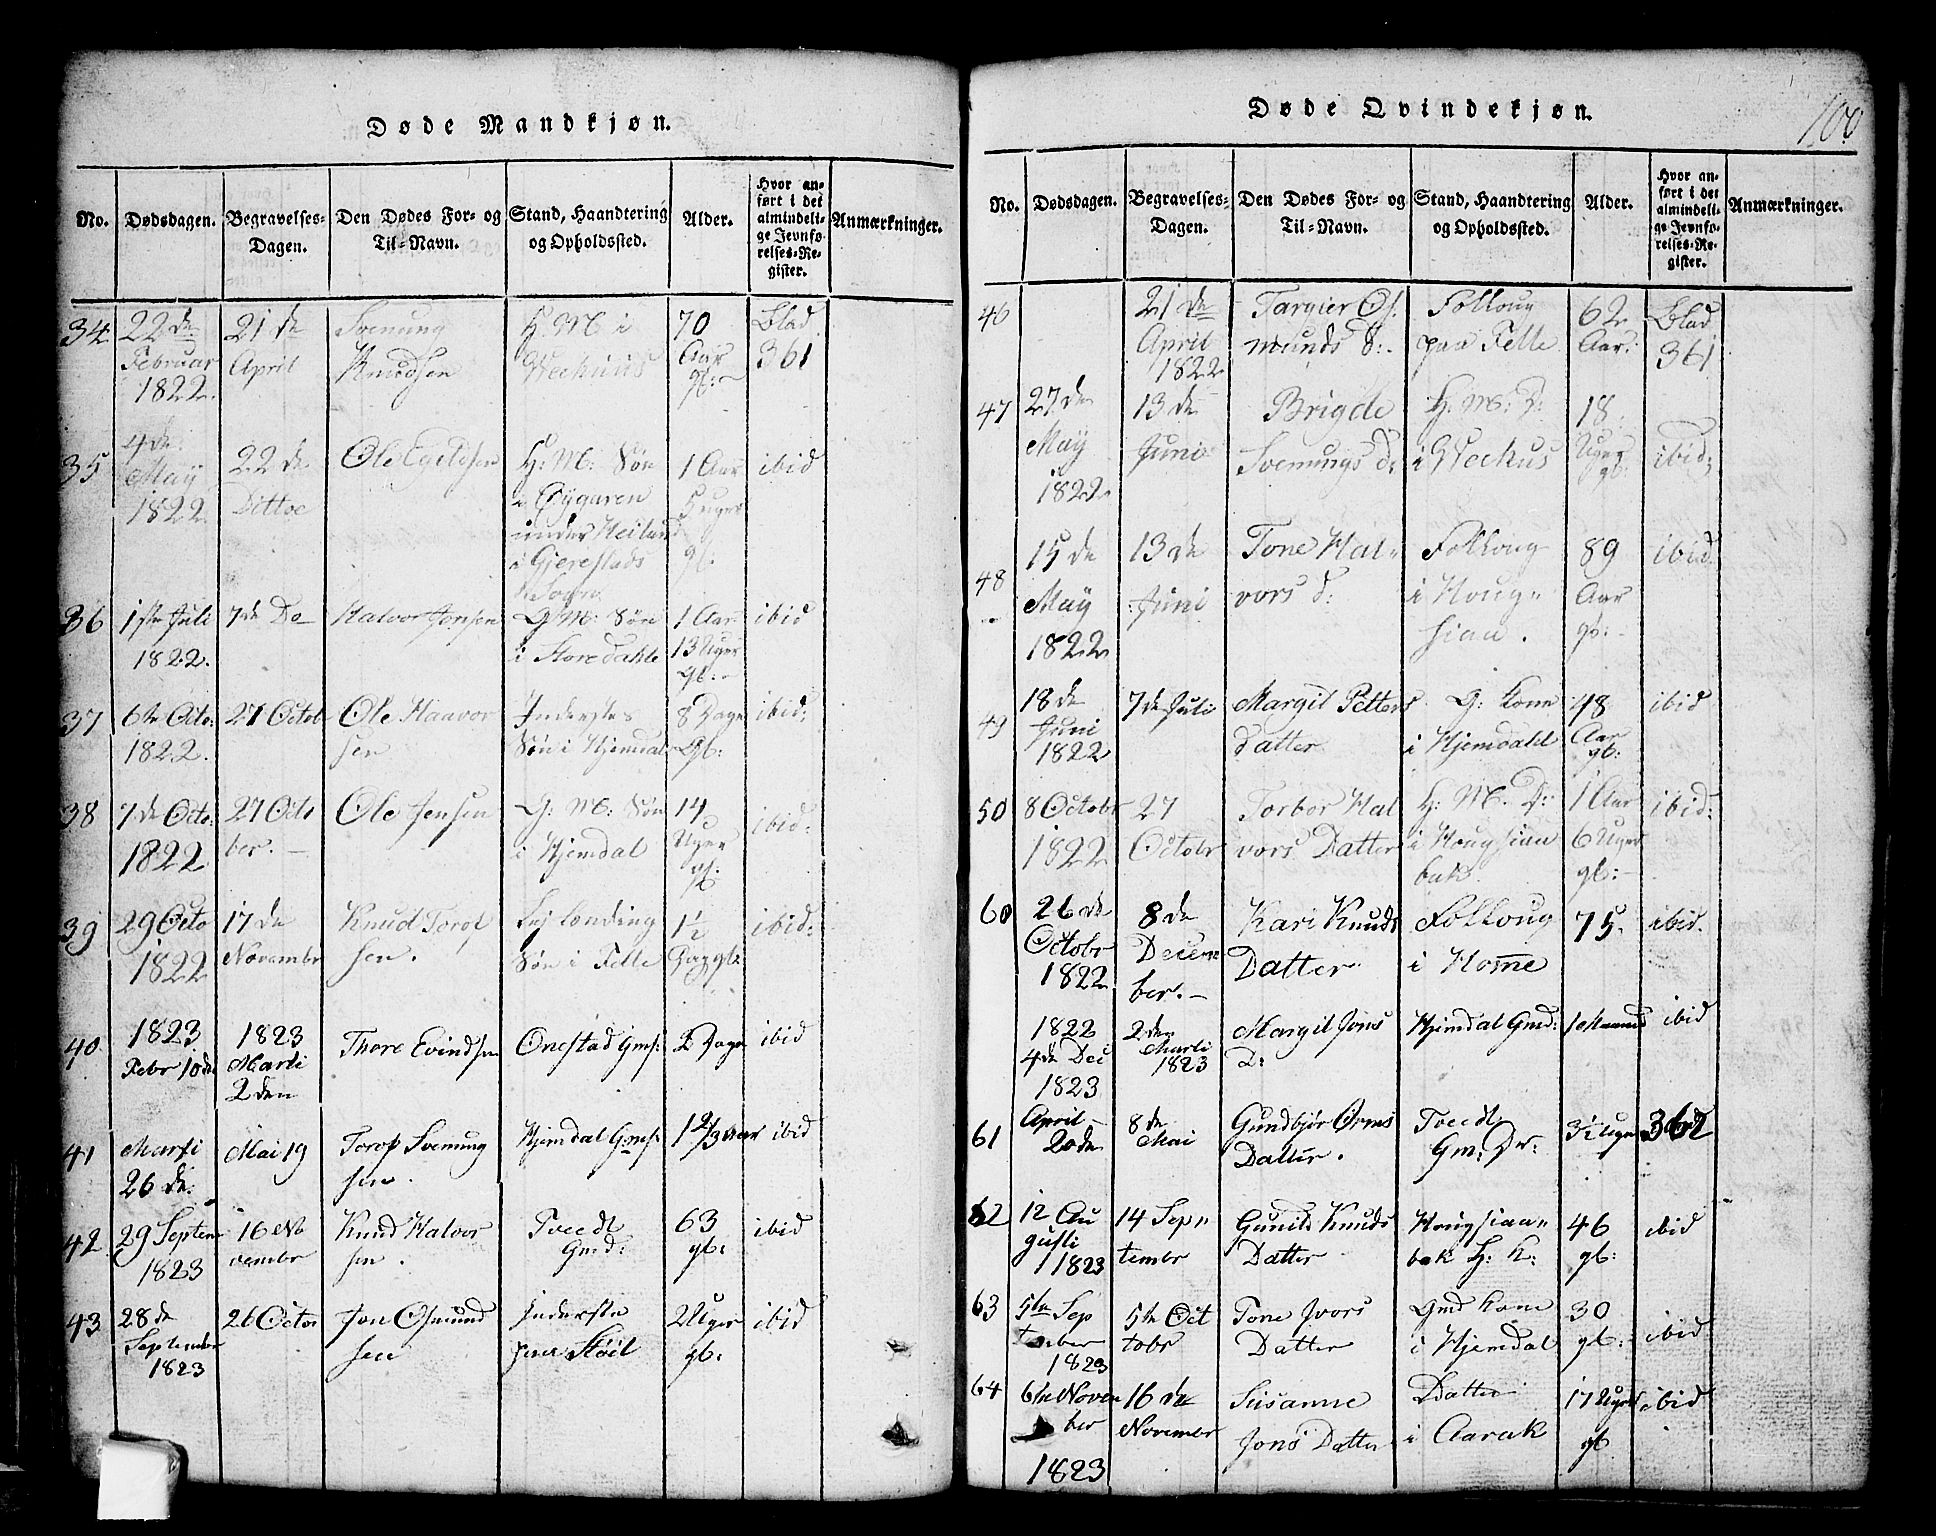 Døde Mandkjøn.
No. Dødsdagen. Begravelses-Dagen. Den Dødes For- og Til-Navn. Stand, Haandtering og Opholdssted. Alder. Hvor anført i det almindelige Jevnførelses-Register. Anmærkninger.
34 22de Februar 1822. 21de April Svenung Knudsen H. M. i Wechuus 70 Aar gl: Blad 361
35 4de May 1822 22de Dittoe Ole Egildsen H: M: Søn i Øygaren under Heiland i Gjerestads Sogn 1 Aar Uger gl. ibid
36 1ste Juli 1822. 7de Do Halvor Jensen G: M: Søn i Store Dahle 1 Aar 13 Uger gl: ibid
37 6te Octo: 1822. 27 Octob Ole Haavorsen Inderstes Søn i Hjemdal 8 Dage gl: ibid:
38 7de Octo: 1822 27 October. Ole Jensen G: M: Søn i Hjemdal 14 Uger gl. ibid:
39 29 Octo 1822 17de Novembr Knud Torofsen. Søn i Felle 1½ ibid:
40 1823 Febr 10de 1823 Marti 2den Thore Evindsen Onestad Gmf: 2 Dage ibid
41 Marti 26de: Mai 19 Torof Svenungsen. Hjemdal Gmf: 1 2/3 Aar ibid
42 29 Septem 1823 16 November Knud Halvorsen. Tveedt Gmd: 63 gl: ibid
43 28de September 1823 26 Octor Jon Osmundsen Inderste paa Støil 2 Uger gl: ibid
Døde Qvindekjøn.
100
No. Dødsdagen. Begravelses-Dagen. Den Dødes For- og Til-Navn. Stand, Haandtering og Opholdssted. Alder. Hvor anført i det almindelige Jevnførelses-Register. Anmærkninger.
46 21de April 1822 Targier Osmunds D: Folloug paa Felle 62 Aar. Blad 361
47 27de May 1822. 13de Juni Brigde Svenungs d: H: M: D: i Wechus 18 Uger gl. ibid;
48 15de May 1822 13de Juni Tone Halvors d: Folloug i Hougsiaa. 89 Aar gl: ibid.
49 18de Juni 1822 7de Juli Margit Petters datter G: Kone i Hjemdahl 48 Aar gl: ibid
50 8 Octobr 1822 27 Octobr Torbor Halvors Datter H: M. D: i Hougsiaabak 1 Aar 6 Uger gl: ibid:
60 26de Octobr 1822 8de December. Kari Knuds Datter Folloug i Home 75. ibid.
1822 4de Dec 2den Marti 1823 Margit Jons D: Hjemdal Gmd: 1 Maaned ibid
61 1823 April 20de 8de Mai Gundbjør Orms Datter. Tveedt Gm: Dr: 3½ Uger 362
62 12 Augusti 1823 14 September Gunild Knuds Datter Hougsiaabak H: K: 46 gl: ibid
63 5te September 1823 5te Octobr Tone Ivors Datter Gmd Kone i Hjemdal 30 gl: ibid
64 6te November 1823 16de Novembr Susanne Jons Datter Datter i Aarak 17 Uger gl ibid